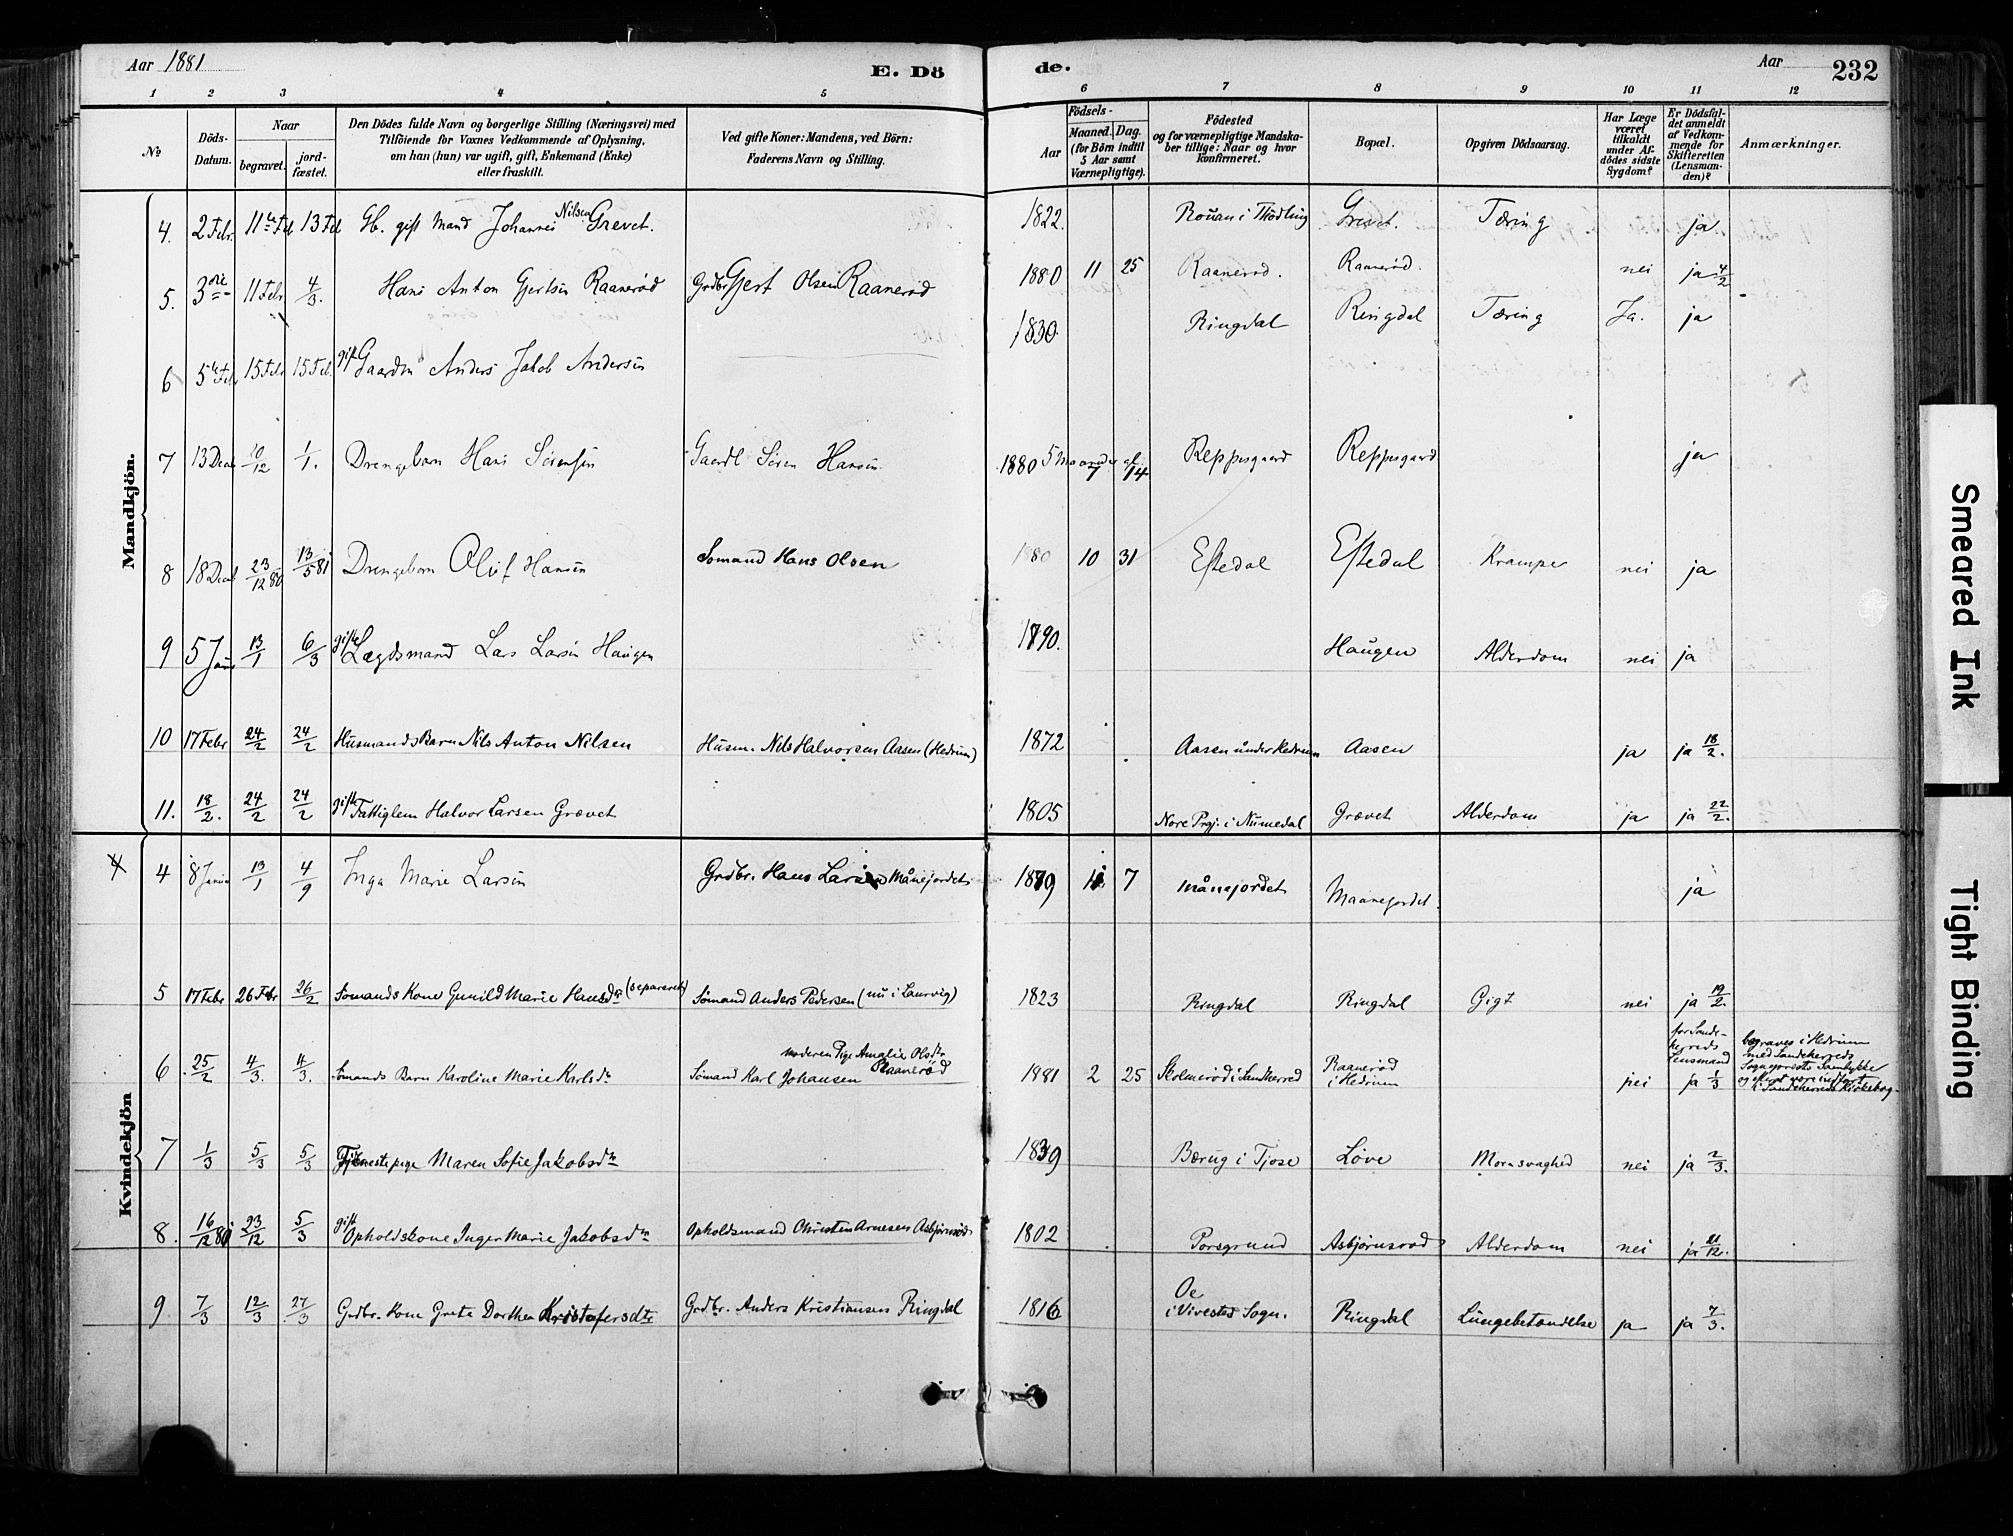 Aar 1881
E. Dö
de.
Aar
232
1 2 3 4 5 6 7 8 9 10 11 12
No
Döds-Datum.
Naar
begravet.
jord-fæstet.
Den Dödes fulde Navn og borgerlige Stilling (Næringsvei) med
Tilföiende for Voxnes Vedkommende af Oplysning,
om han (hun) var ugift, gift, Enkemand (Enke)
eller fraskilt.
Ved gifte Koner: Mandens, ved Börn:
Faderens Navn og Stilling.
Födsels-
Aar
Maaned. Dag.
(for Börn indtil
5 Aar samt
Værnepligtige).
Födested
og for værnepligtige Mandska-
ber tillige: Naar og hvor
konfirmeret.
Bopæl.
Opgiven Dödsaarsag.
Har Læge
været
tilkaldt
under Af-
dödes sidste
Sygdom?
Er Dödsfal-
det anmeldt
af Vedkom-
mende for
Skifteretten
(Lensman-
den)?
Anmærkninger.
Mandkjön.
4. 2 Febr. 11te Feb 13 Feb gift Mand Johannes Nilsen Grevet. 1822. i Thjödling Grevet. Tæring ja
5. 3die 11 Febr 4/3. Hans Anton Gjertsen Raanerød Grdbr Gjert Olsen Raanerød 1880 11 25 Raanerød. Raanerød. nei ja 4/2
6 5te Feb 15 Feb 15 Feb. gift Gaardm Anders Jakob Andersen 1830 Ringdal Ringdal Tæring Ja. ja
7 13 Dec 1/1. Drengebarn Hans Sörensen Gaardb Sören Hansen 1880 7 14 Reppesgaard Reppesgaard ja
8 18 Dec 23/12 80 13/5 81 Drengebarn Oluf Hansen Sømand Hans Olsen 1880 10 31 Eftedal Eftedal Krampe nei ja
9 5 Jan 13/1 6/3 gift Lægdsmand Lars Larsen Haugen 1790. Haugen Alderdom nei ja
10 17 Febr 24/2 24/2 Husmands Barn Nils Anton Nilsen Husm. Nils Halvorsen Aasen (Hedrum) 1872 Aasen under Hedrum Aasen ja ja 18/2.
11. 18/2. 24/2 24/2 gift Fattiglem Halvor Larsen Grævet 1805 Nore Prgj. i Numedal Grævet Alderdom ja ja 22/2.
Kvindekjön
4 8 Januar 13/1 4/9 Inga Marie Larsen Grdbr. Hans Larsen Månejordet 1879 11 7 Månejordet Maanejordet. ja
5 17 Febr 26 Febr 26/2 Sømands Kone Gunild Marie Hansdr (separeret) Sømand Anders Pedersen (nu i Laurvig) 1823 Ringdal Ringdal Gigt nei ja 19/2.
6. 25/2 4/3. 4/3. Sømands Barn Karoline Marie Karlsdr Sømand Karl Johansen moderen Pige Amalie Olsdr Raanerød 1881 2 25 Skolmerød i Sandherred Raanerød i Hedrum nei for Sande-herreds Lensmand ja 1/3 begraves i Hedrum
med Sandeherreds
Sogneprests Samtykke
i Sandeherreds Kirkebog.
7 1/3 5/3 5/3 Tjenestepige Maren Sofie Jakobsdr 1839 i Tjose Løve nei ja 2/3.
8. 16/12 80 23/12 5/3 gift Opholdskone Inger Marie Jakobsdr Opholdsmand Christen Arnesen Asbjørnrød 1802 Porsgrund Asbjørnsrød Alderdom nei ja 21/12.
9. 7/3 12/3 27/3 Grdbr. Kone Grete Dorthea Kristofersdtr Grdbr. Anders Kristiansen Ringdal 1816 Oe i Vivestad Sogn. Ringdal Lungebetændelse ja ja 7/3.
Smeared Ink
Tight Binding